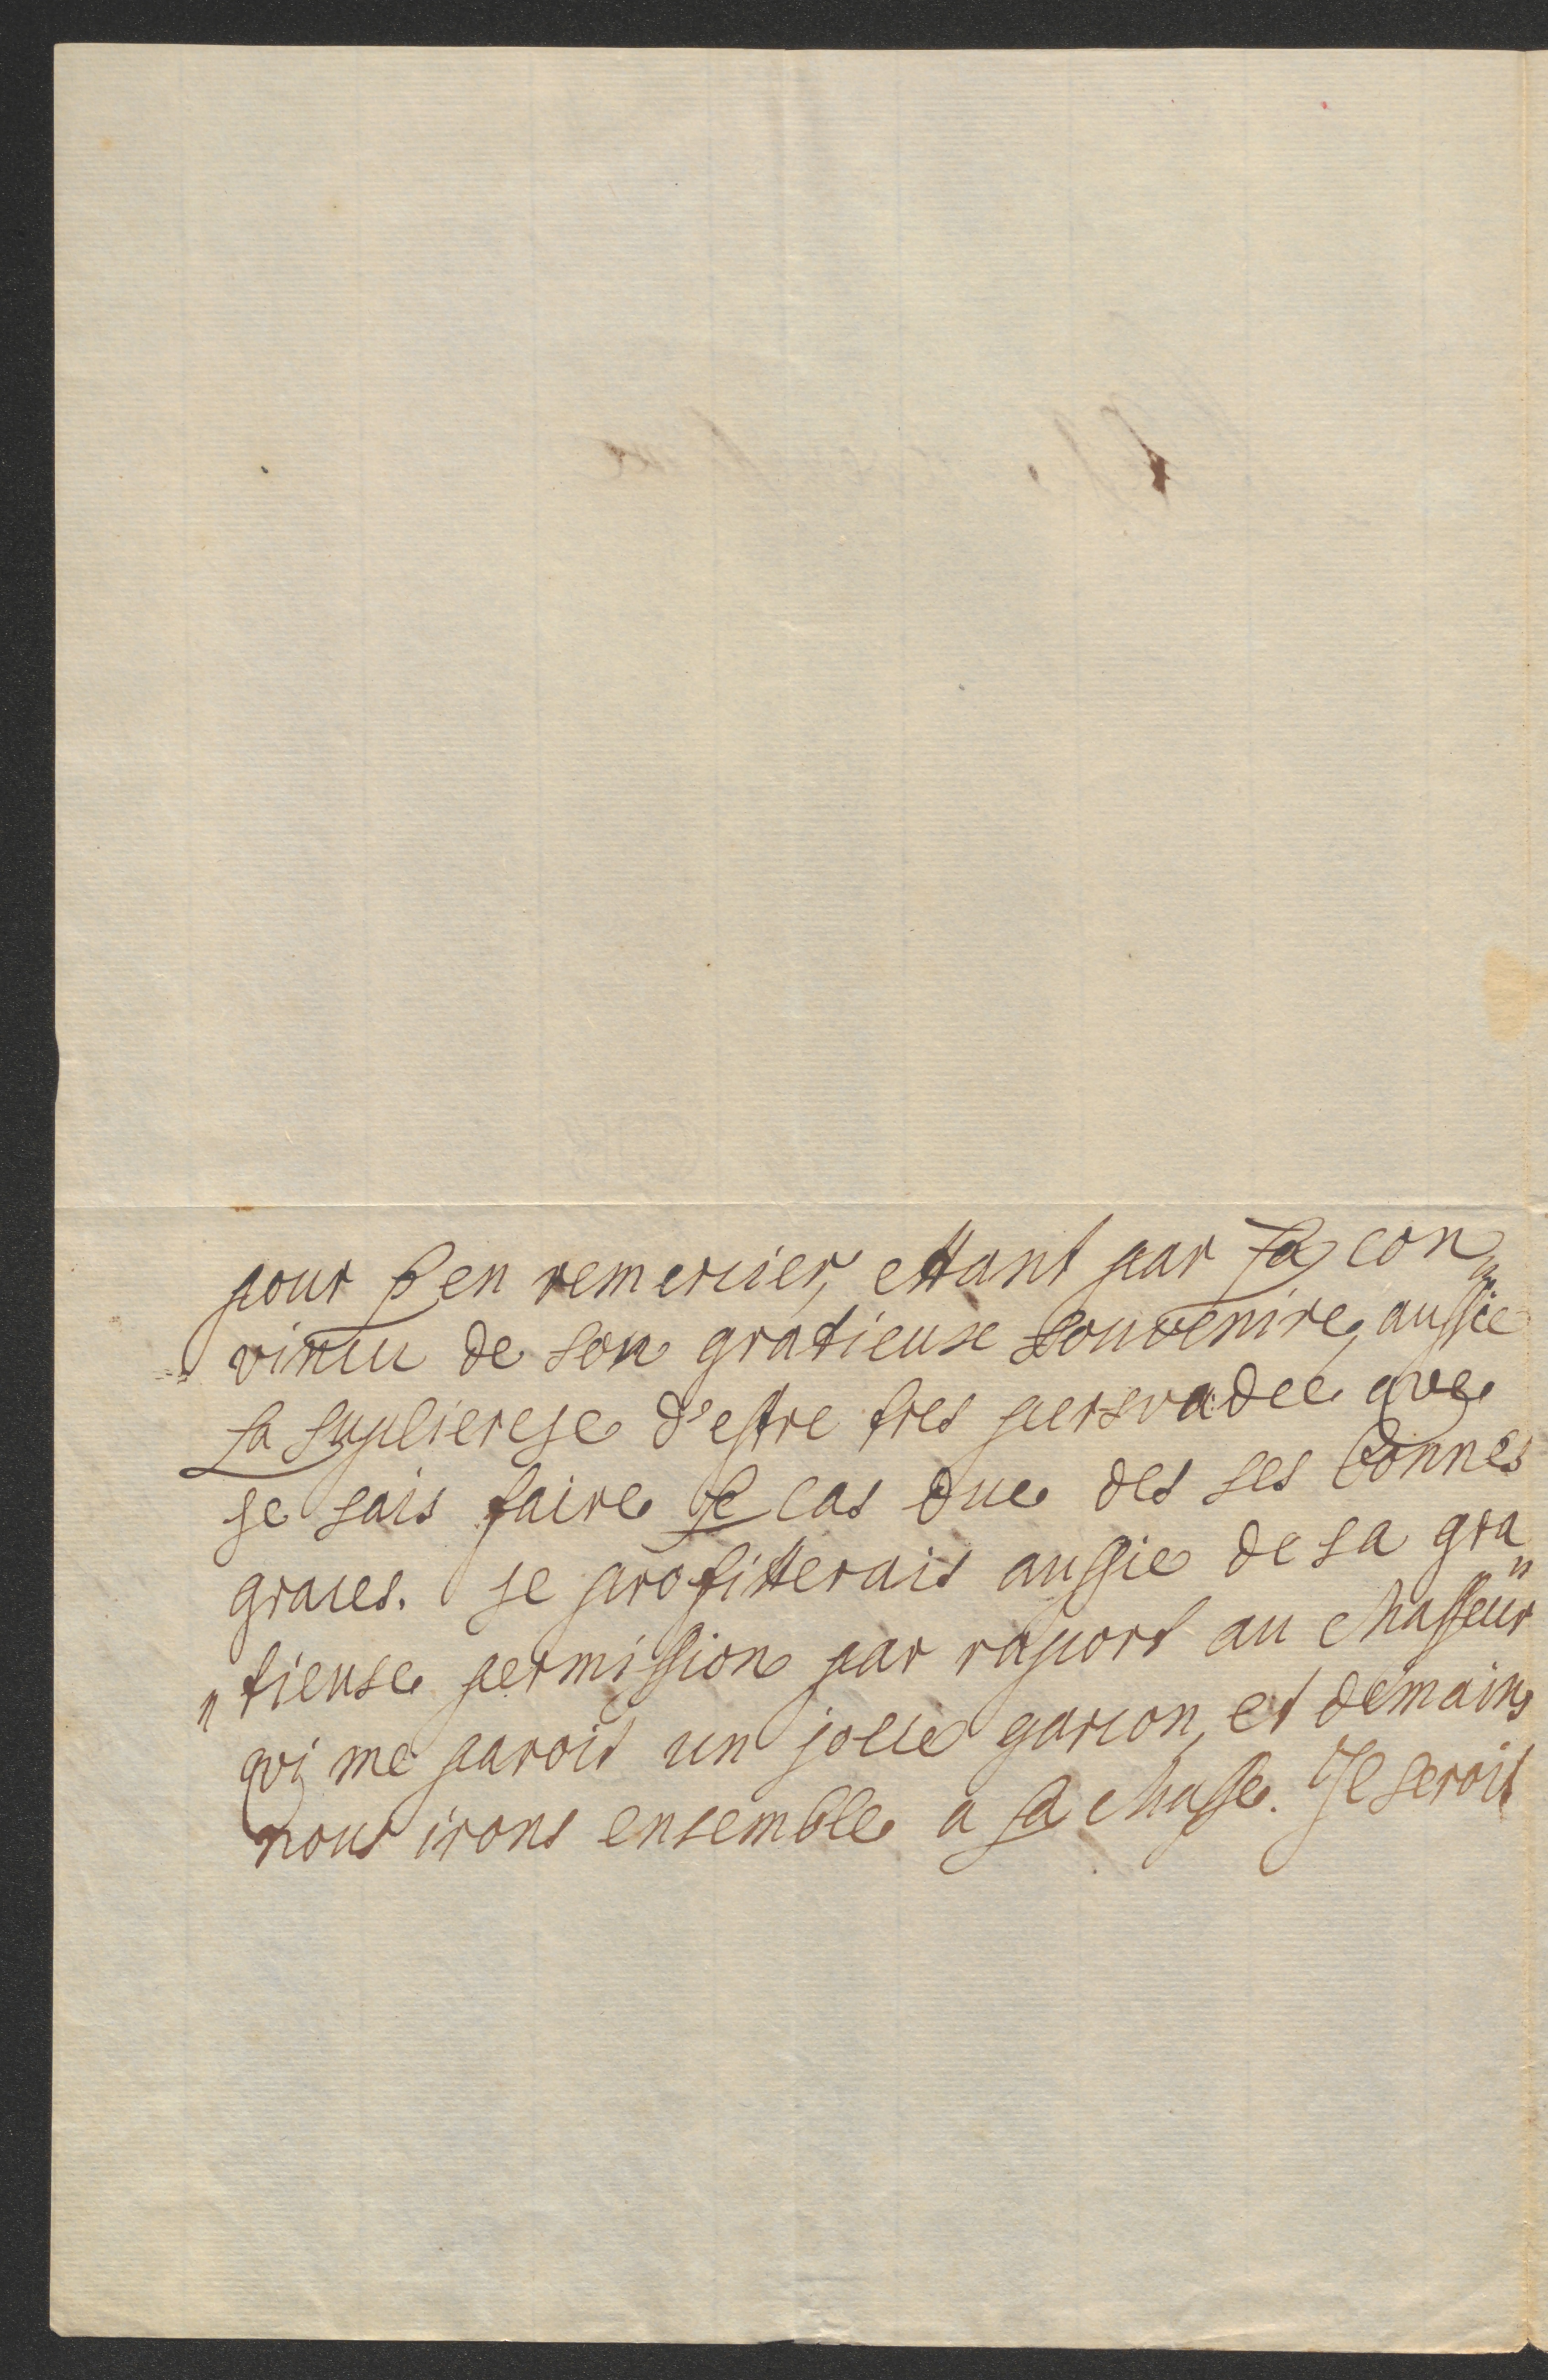 pour l'en remercier, ettant par la con„
„vincu de son gratieuse souvenire, aussie
la suplierese d'estre tres persvadée qve
je sais faire le cas due des ses bonnes
graces. Je profitterais aussie de sa gra„
„tieuse permission par raport au chasseur
qvi me paroit un jolie garcon, et demain
nous irons ensemble a la chasse. Je serois